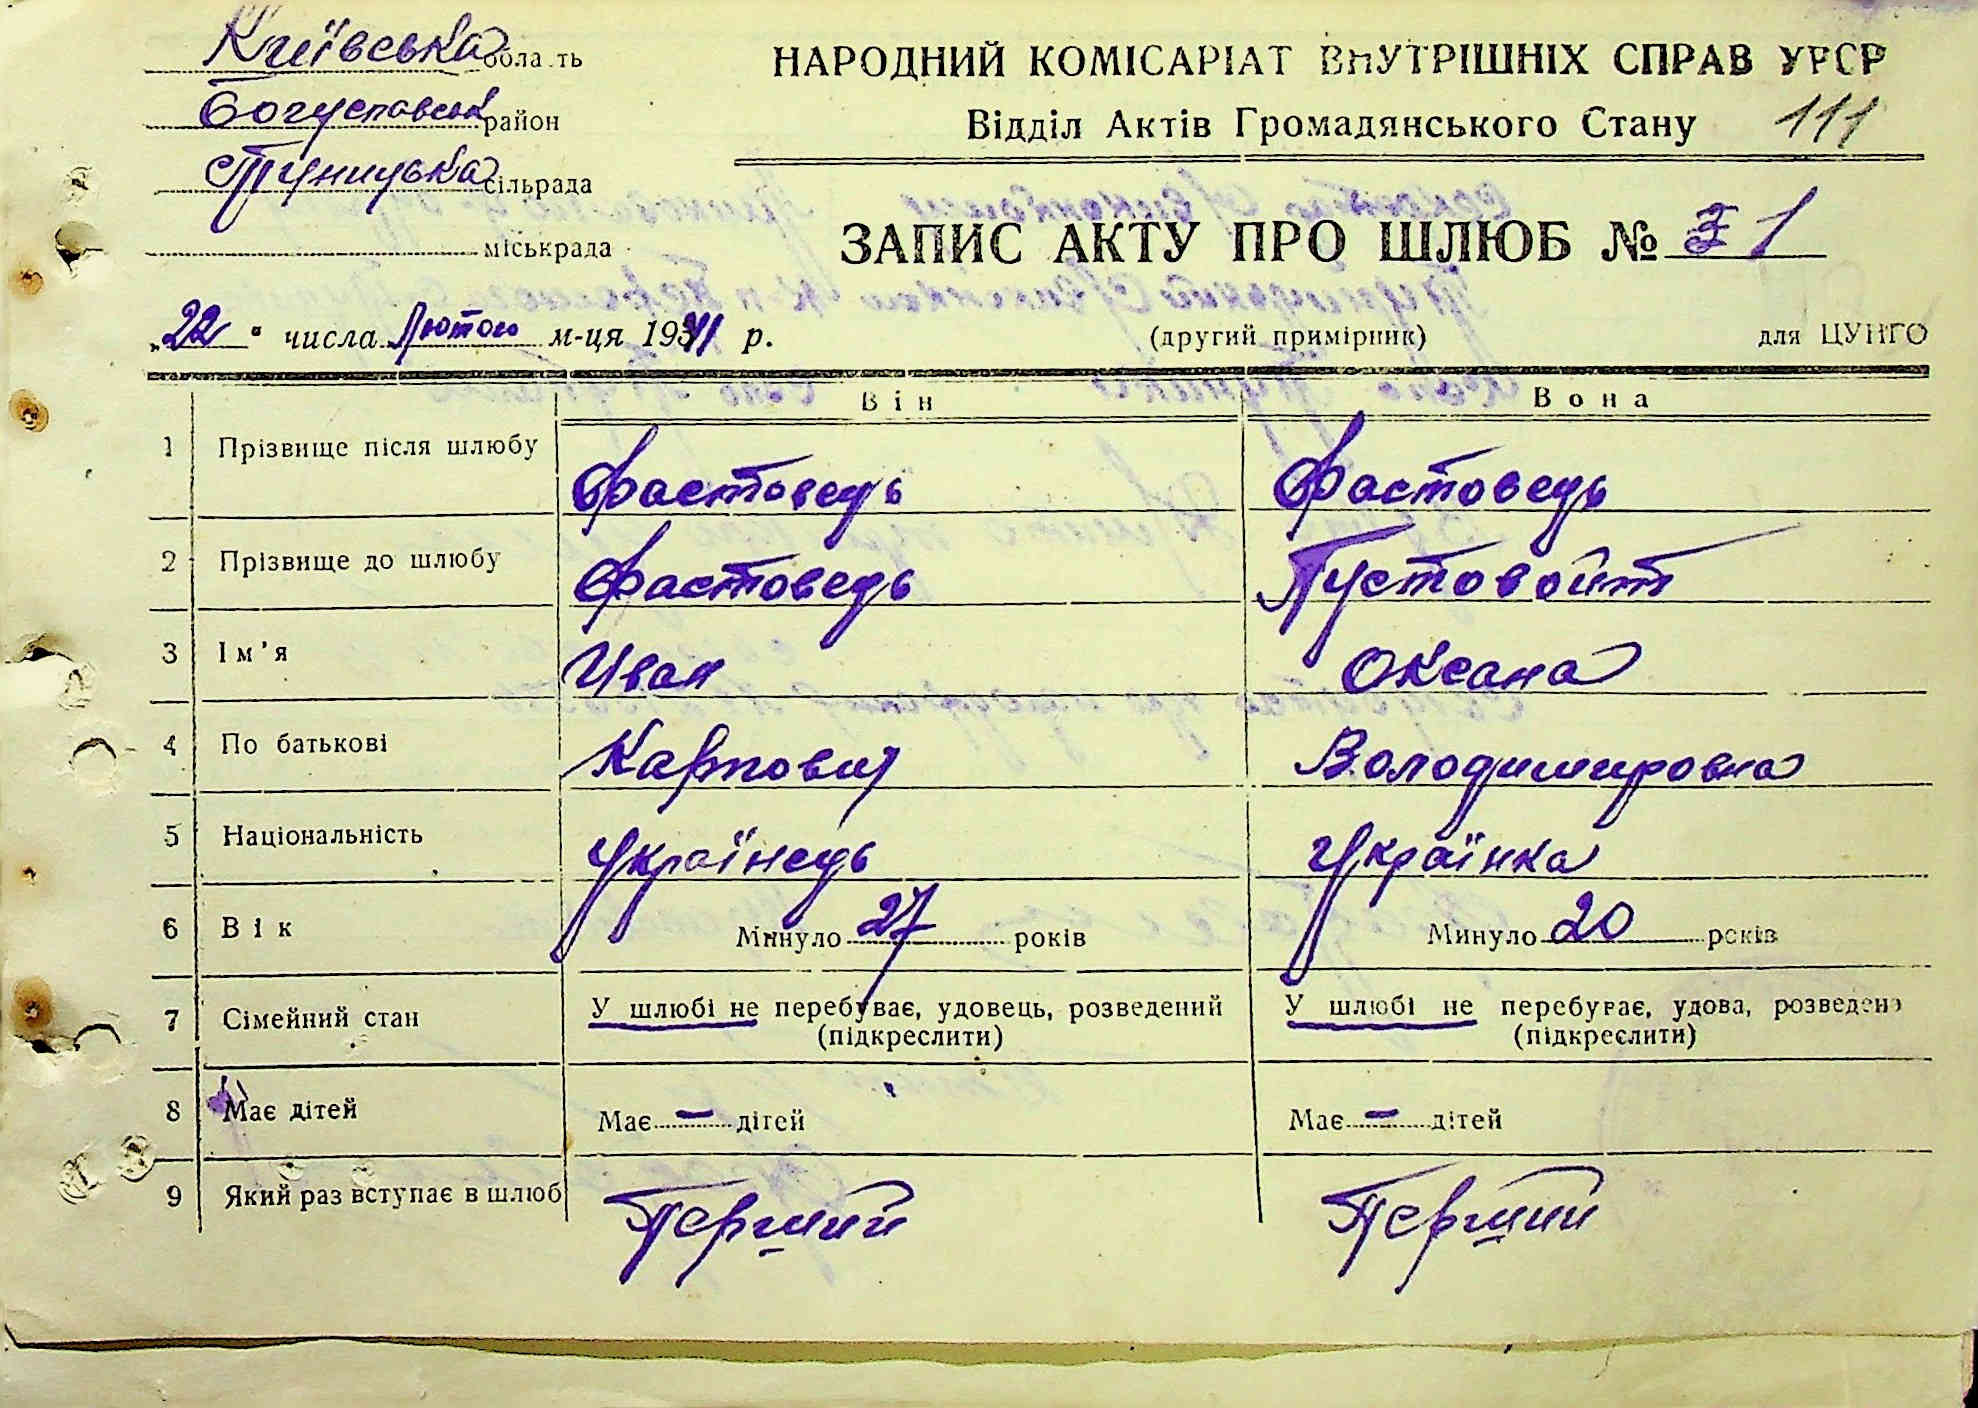 Київська область
Богуславськ район
Туницька сільрада
міськрада
НАРОДНИЙ КОМІСАРІАТ ВНУТРІШНІХ СПРАВ УРСР
Відділ Актів Громадянського Стану 111
ЗАПИС АКТУ ПРО ШЛЮБ №
„22" числа Лютого м-ця 1941 р.
(другий примірник) для ЦУНГО
Він Вона
1 Прізвище після шлюбу Фастовець Фастовець
2 Прізвище до шлюбу Фастовець Пустовойт
3 Ім'я Иван Оксана
4 По батькові Карпович Володимировна
5 Національність Українець Українка
6 Вік Минуло 27 років Минуло 20 років
7 Сімейний стан У шлюбі не перебуває, удовець, розведений У шлюбі не перебуває, удова, розведена
(підкреслити) (підкреслити)
8 Має дітей Має – дітей Має – дітей
9 Який раз вступає в шлюб Перший Перший